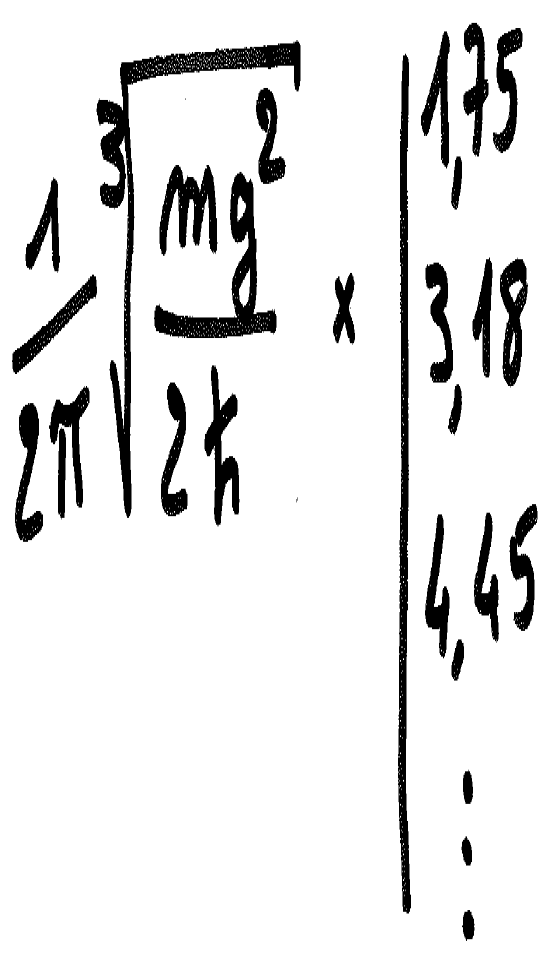 1/2π ∛(mg²/2ħ) × | 1,75
3,18
4,45
⋮